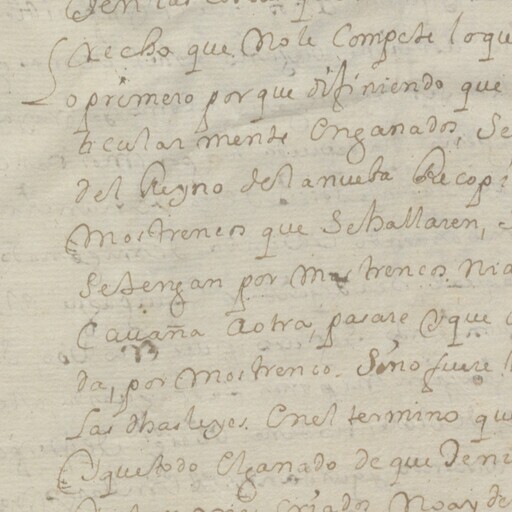 recho que No le Compete lo que
o primero por que difiniendo que
ticular mente Enganados, Se
del Reyno de la nueba Recopi
Mostrencos que Se hallaren,
Se tengan por Mostrencos Ni a
Cauaña a otra, pasare Y que
da, por Mostrenco. Sino fuere
las dhas leyes. En el termino qu
Y que todo El ganado de que Deni
Criados No ay de